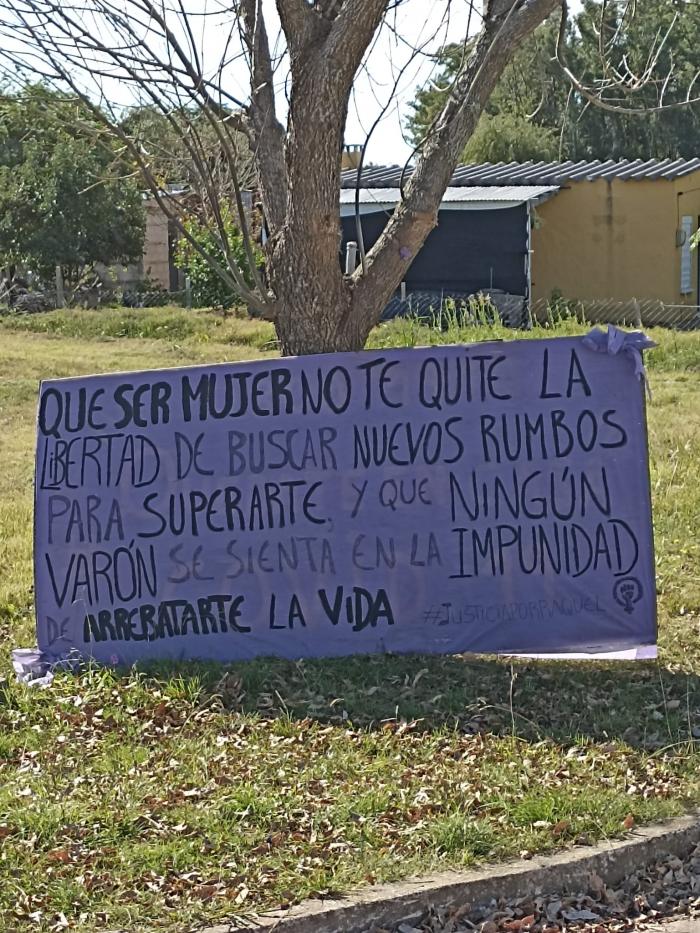 QUE SER MUJER NO TE QUITE LA
LIBERTAD DE BUSCAR NUEVOS RUMBOS
PARA SUPERARTE, Y QUE NINGÚN
VARÓN SE SIENTA EN LA IMPUNIDAD
DE ARREBATARTE LA VIDA #JUSTICIAPORRAQUEL